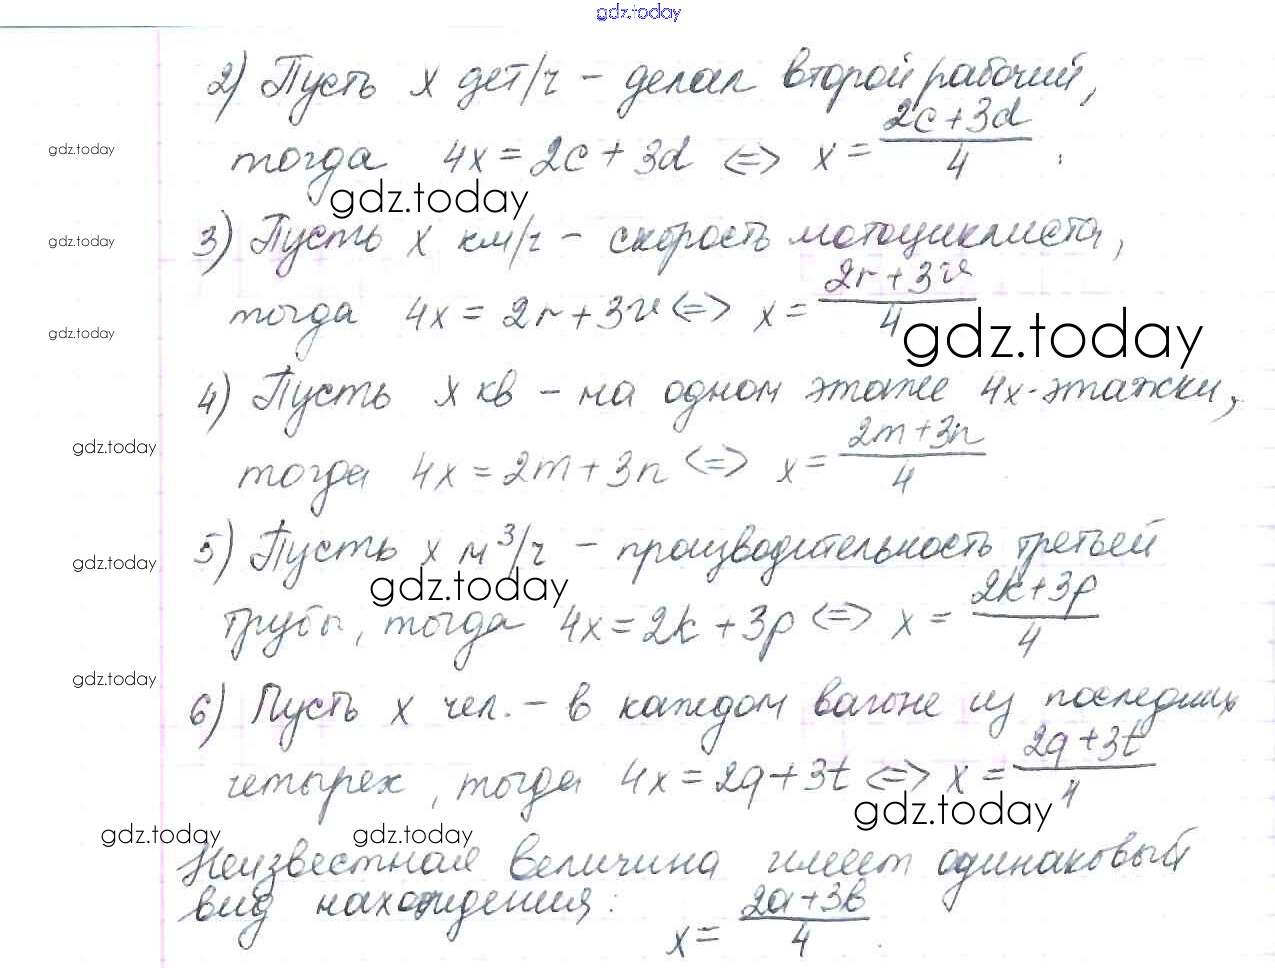 gdz.today
2) Пусть x дет/ч – делал второй рабочий,
gdz.today
тогда 4x = 2c + 3d <=> x = (2c+3d)/4.
gdz.today
3) Пусть x км/ч – скорость мотоциклиста,
gdz.today
тогда 4x = 2r + 3v <=> x = (2r+3v)/4
gdz.today
gdz.today
4) Пусть x кв – на одном этаже 4х-этажки,
gdz.today
тогда 4x = 2m + 3n <=> x = (2m+3n)/4
5) Пусть x м³/ч – производительность третьей
gdz.today
gdz.today
трубы, тогда 4x = 2k + 3p <=> x = (2k+3p)/4
gdz.today
6) Пусть x чел. – в каждом вагоне из последних
четырех, тогда 4x = 2q + 3t <=> x = (2q+3t)/4
gdz.today
gdz.today
gdz.today
Неизвестная величина имеет одинаковый
вид нахождения:
x = (2a+3b)/4.